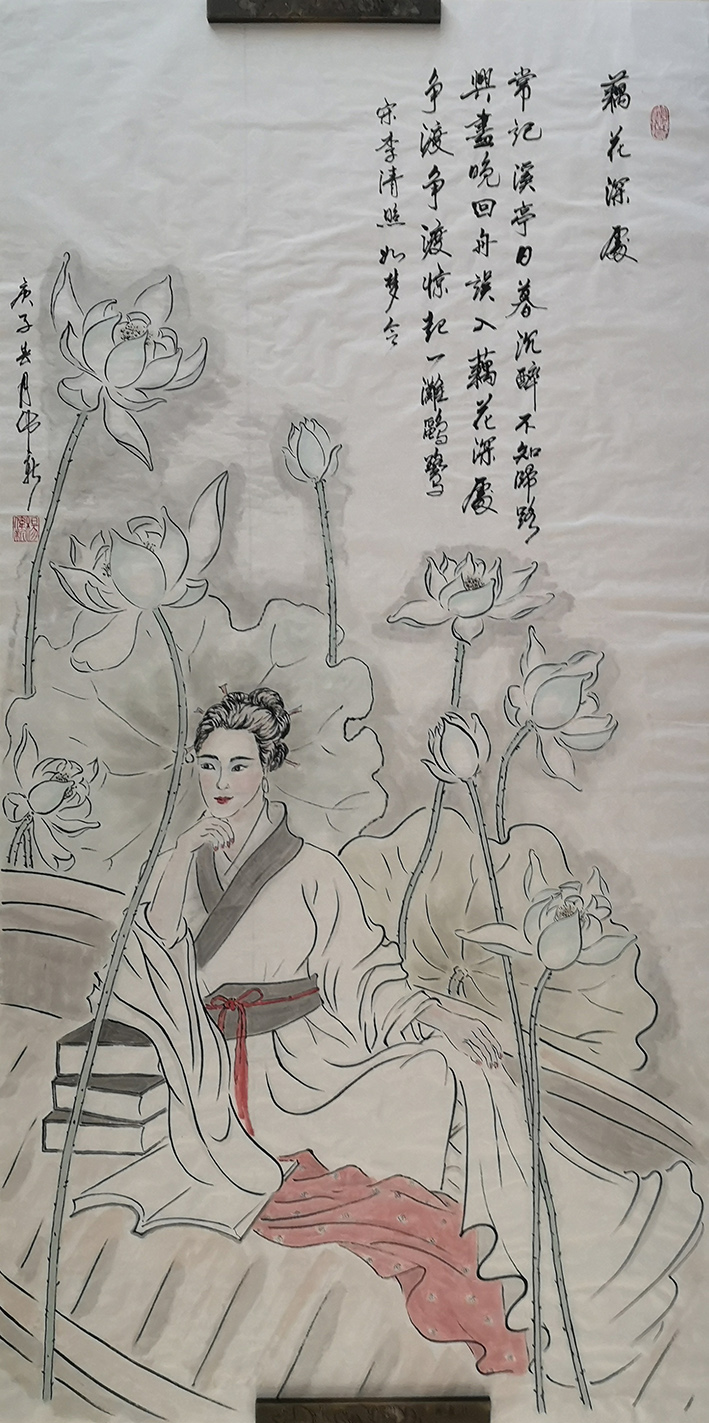 藕花深處
常記溪亭日暮沉醉不知歸路
興盡晚回舟誤入藕花深處
争渡争渡惊起一灘鷗鷺
宋李清照如梦令
庚子春月伟新